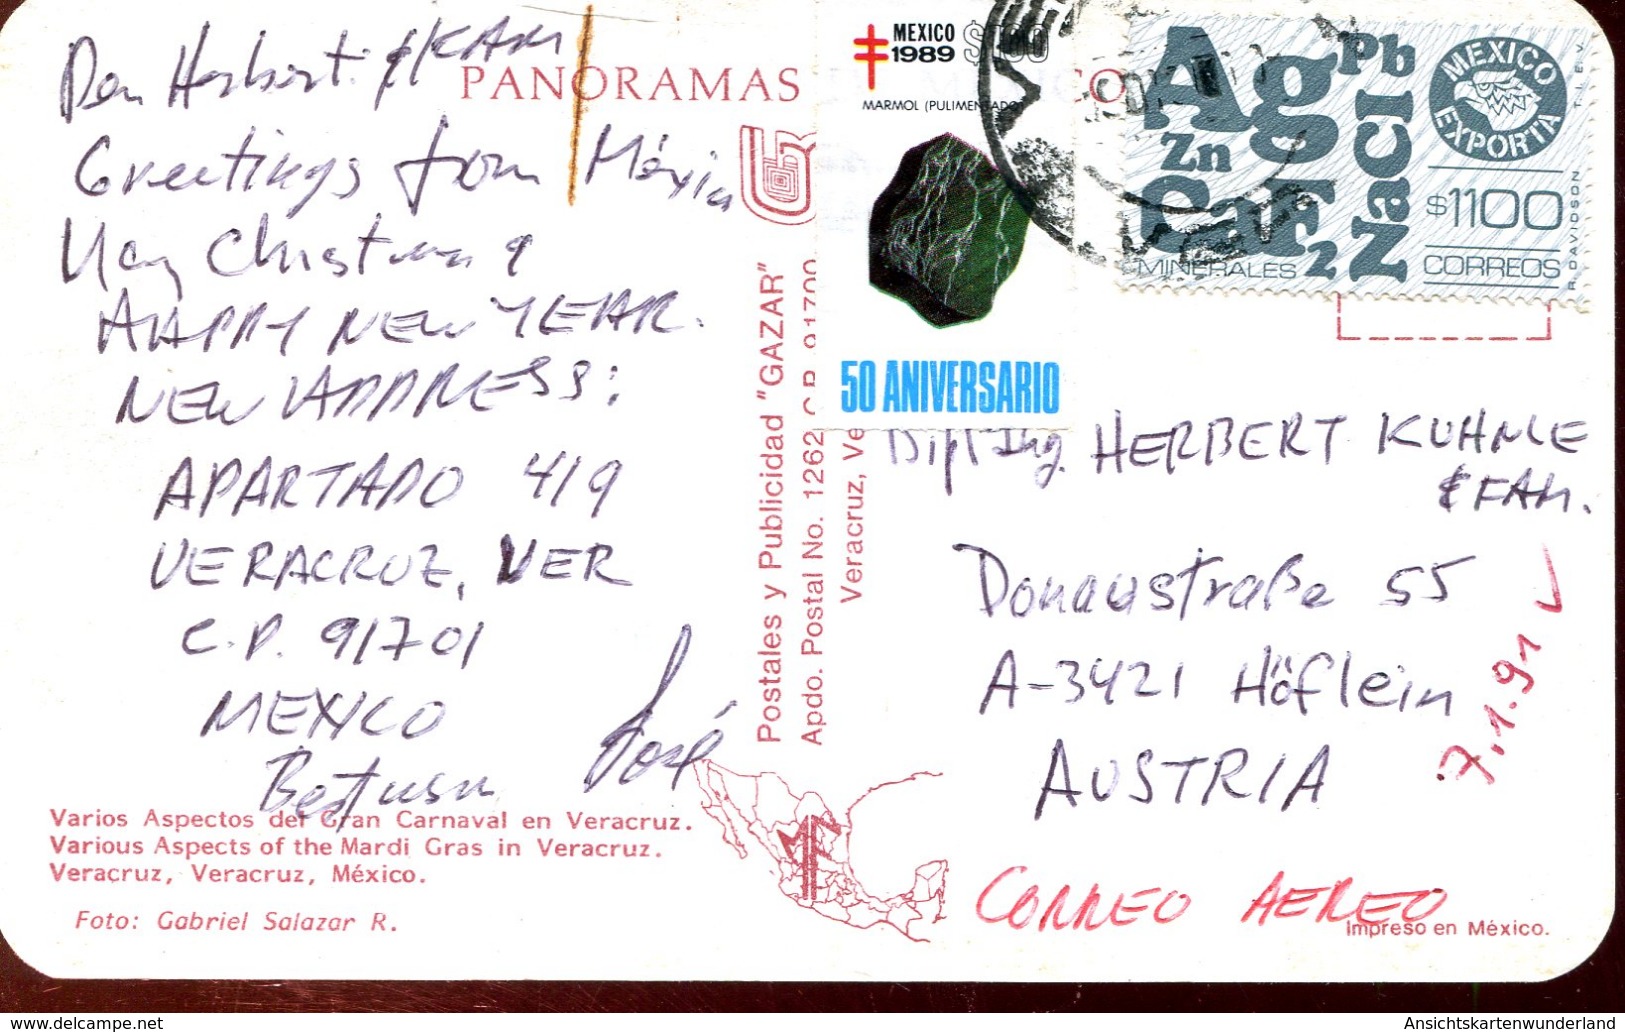 Dear Herbert & FAM
Greetings from México
Merry Christmas &
HAPPY NEW YEAR.
NEW ADDRESS:
APARTADO 419
VERACRUZ, VER
C.P. 91701
MEXICO
José
PANORAMAS
CO
Varios Aspectos del Gran Carnaval en Veracruz.
Various Aspects of the Mardi Gras in Veracruz.
Veracruz, Veracruz, México.
Foto: Gabriel Salazar R.
Postales y Publicidad "GAZAR"
Apdo. Postal No. 1262 C.P. 91700
Veracruz, Ve
MEXICO
1989
MARMOL (PULIMENTADO)
50 ANIVERSARIO
Ag Pb
Zn
CaF2
NaCl
MEXICO
EXPORTA
$1100
MINERALES
CORREOS
R. DAVIDSON
T.I.E.V.
Dipl. Ing. HERBERT KUHNLE
& FAM.
Donaustraße 55
A-3421 Höflein
AUSTRIA
7.1.91
CORREO AEREO
Impreso en México.
ansichtskartenwunderland.delcampe.net
Ansichtskartenwunderland